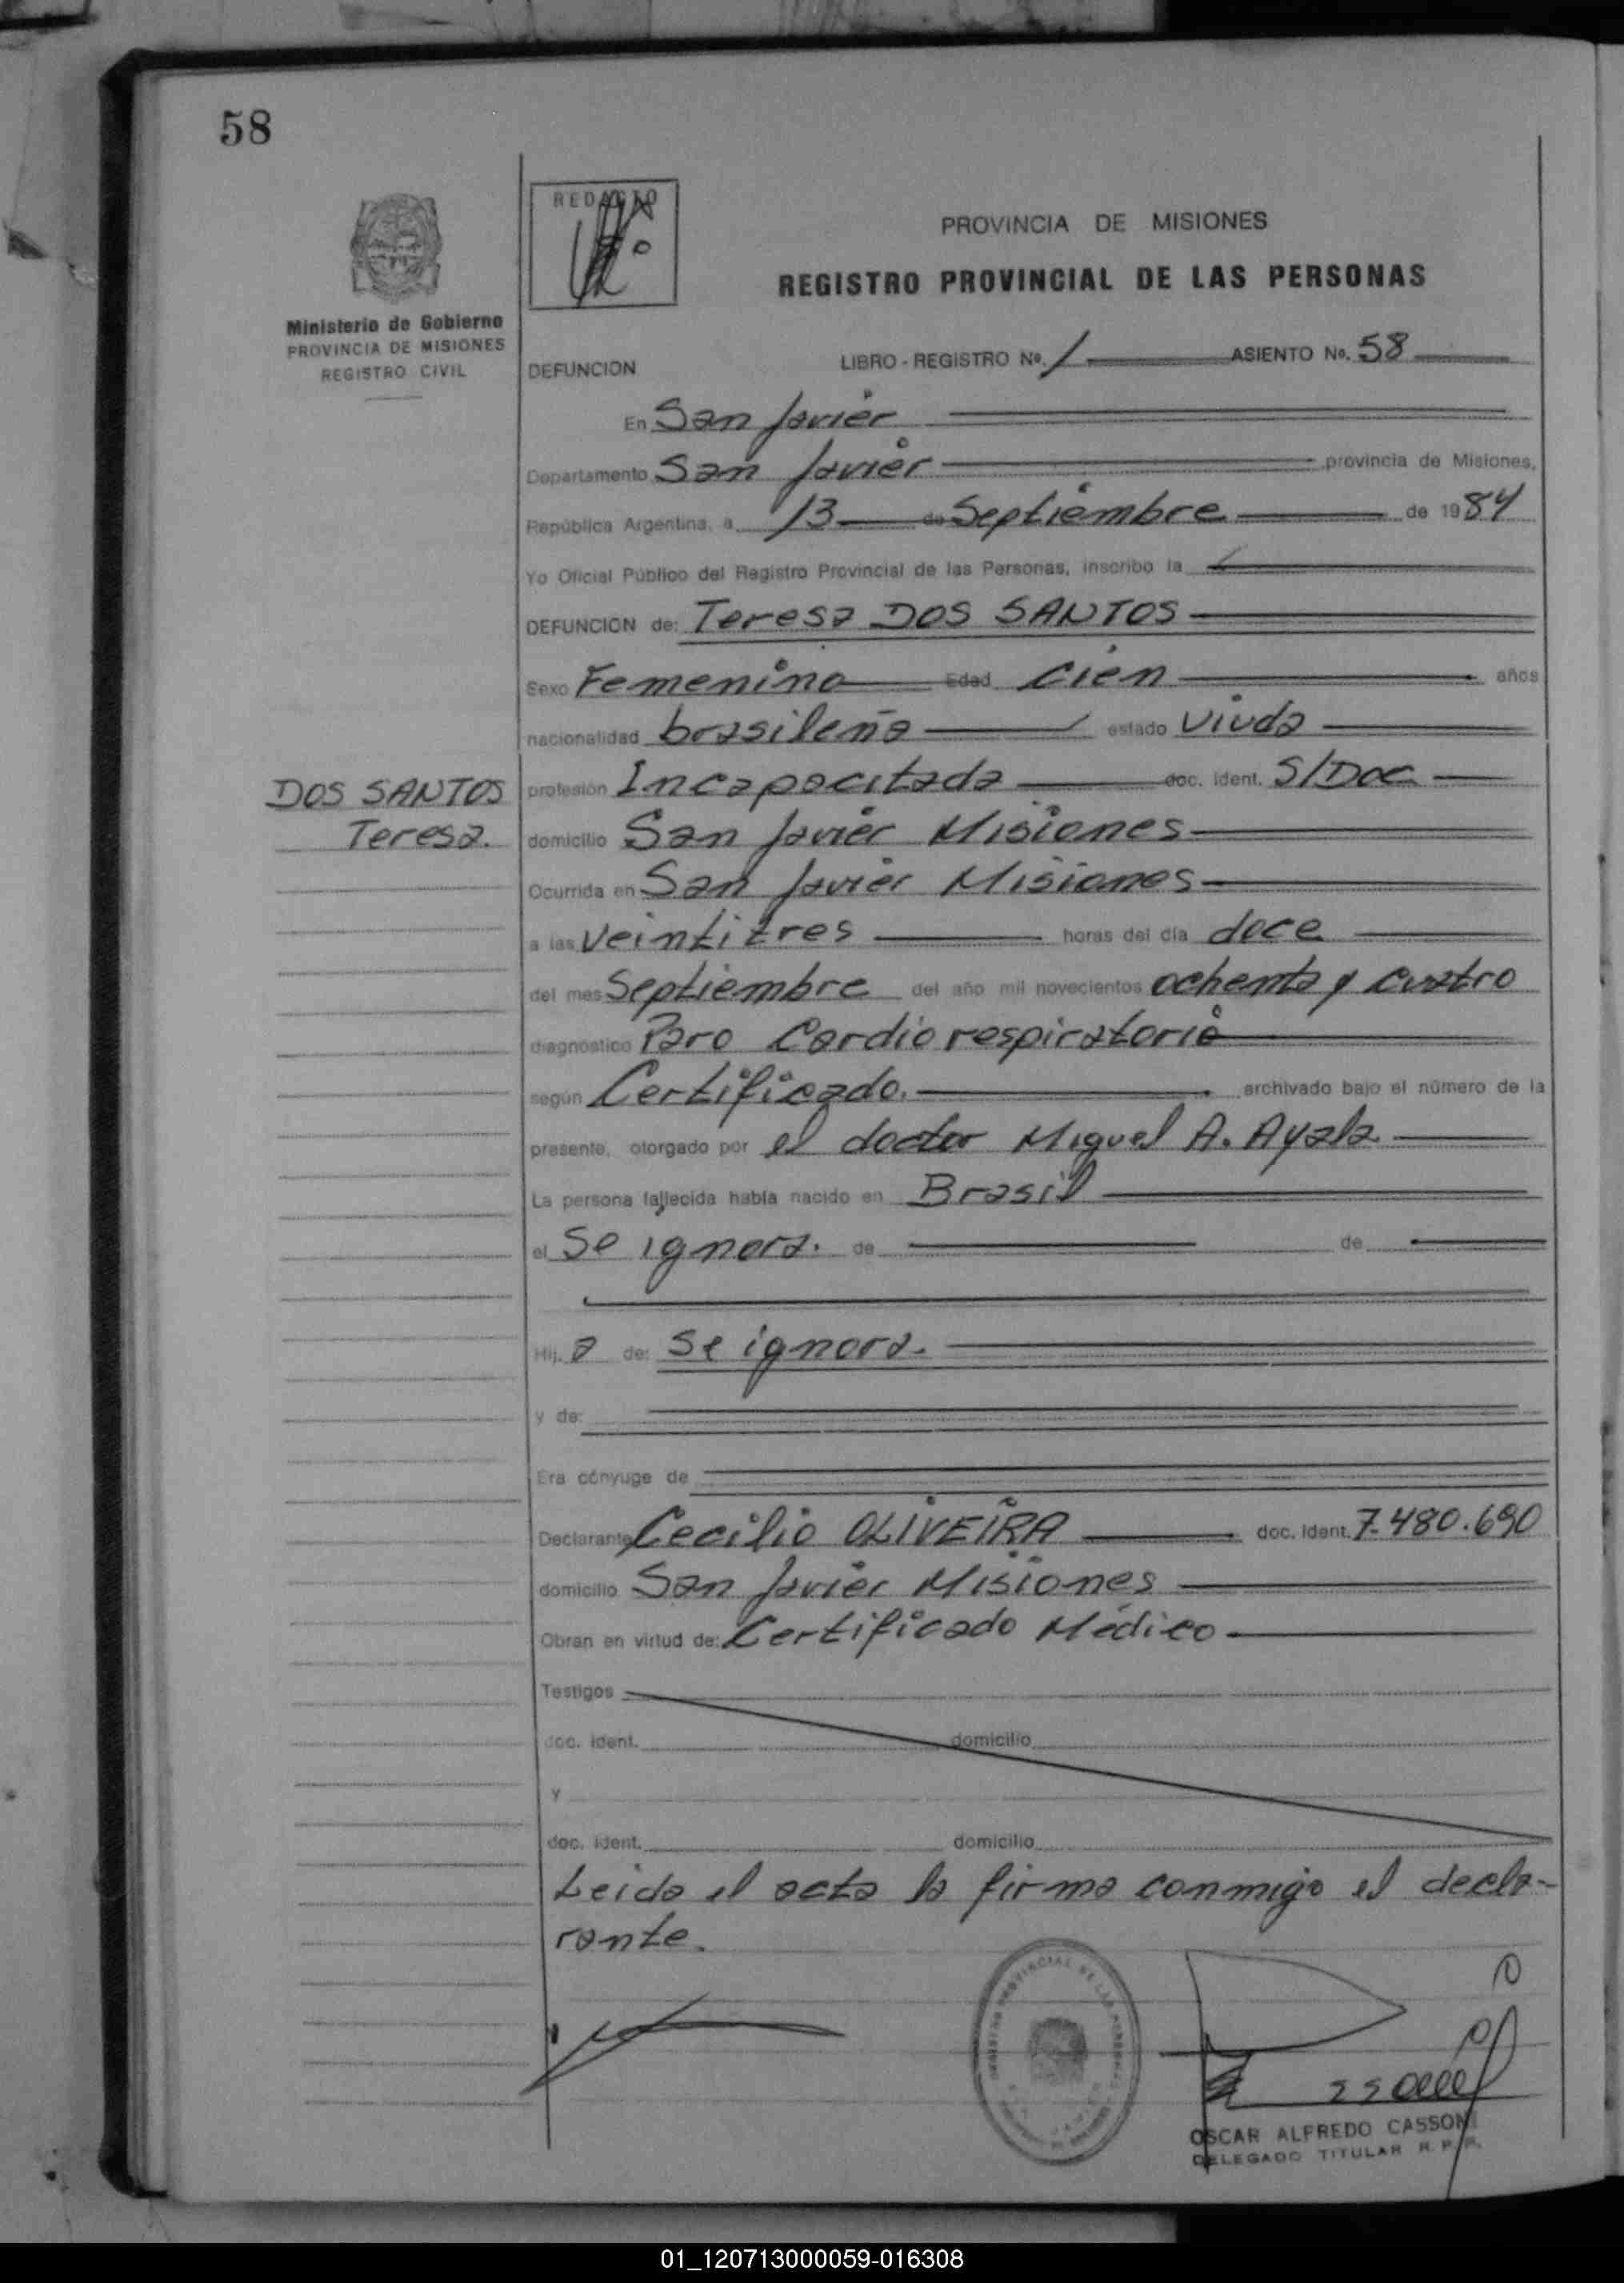 58
REDACTO
PROVINCIA DE MISIONES
REGISTRO PROVINCIAL DE LAS PERSONAS
Ministerio de Gobierno
PROVINCIA DE MISIONES
REGISTRO CIVIL
DEFUNCION LIBRO - REGISTRO Nº. 1 ASIENTO No. 58
En San Javier
Departamento San Javier provincia de Misiones,
República Argentina, a 13 de Septiembre de 1984
Yo Oficial Público del Registro Provincial de las Personas, inscribo la
DEFUNCION de: Teresa DOS SANTOS
Sexo Femenino Edad Cien años
nacionalidad brasileña estado Viuda
DOS SANTOS
Teresa.
profesión Incapacitada doc. ident. S/Doc
domicilio San Javier Misiones
Ocurrida en San Javier Misiones
a las Veintitres horas del día doce
del mes Septiembre del año mil novecientos ochenta y cuatro
diagnostico Paro Cardiorespiratorio
según Certificado. archivado bajo el número de la
presente, otorgado por el doctor Miguel A. Ayala
La persona fallecida había nacido en Brasil
el Se ignora. de de
Hij.a de: Se ignora.
y de:
Era cónyuge de
Declarante Cecilio OLIVEIRA doc. ident. 7.480.690
domicilio San Javier Misiones
Obran en virtud de: Certificado Médico
Testigos
doc. ident. domicilio
y
doc. ident. domicilio
Leida el acta la firma conmigo el decla-
rante.
OSCAR ALFREDO CASSONI
DELEGADO TITULAR R. P. P.
01_120713000059-016308